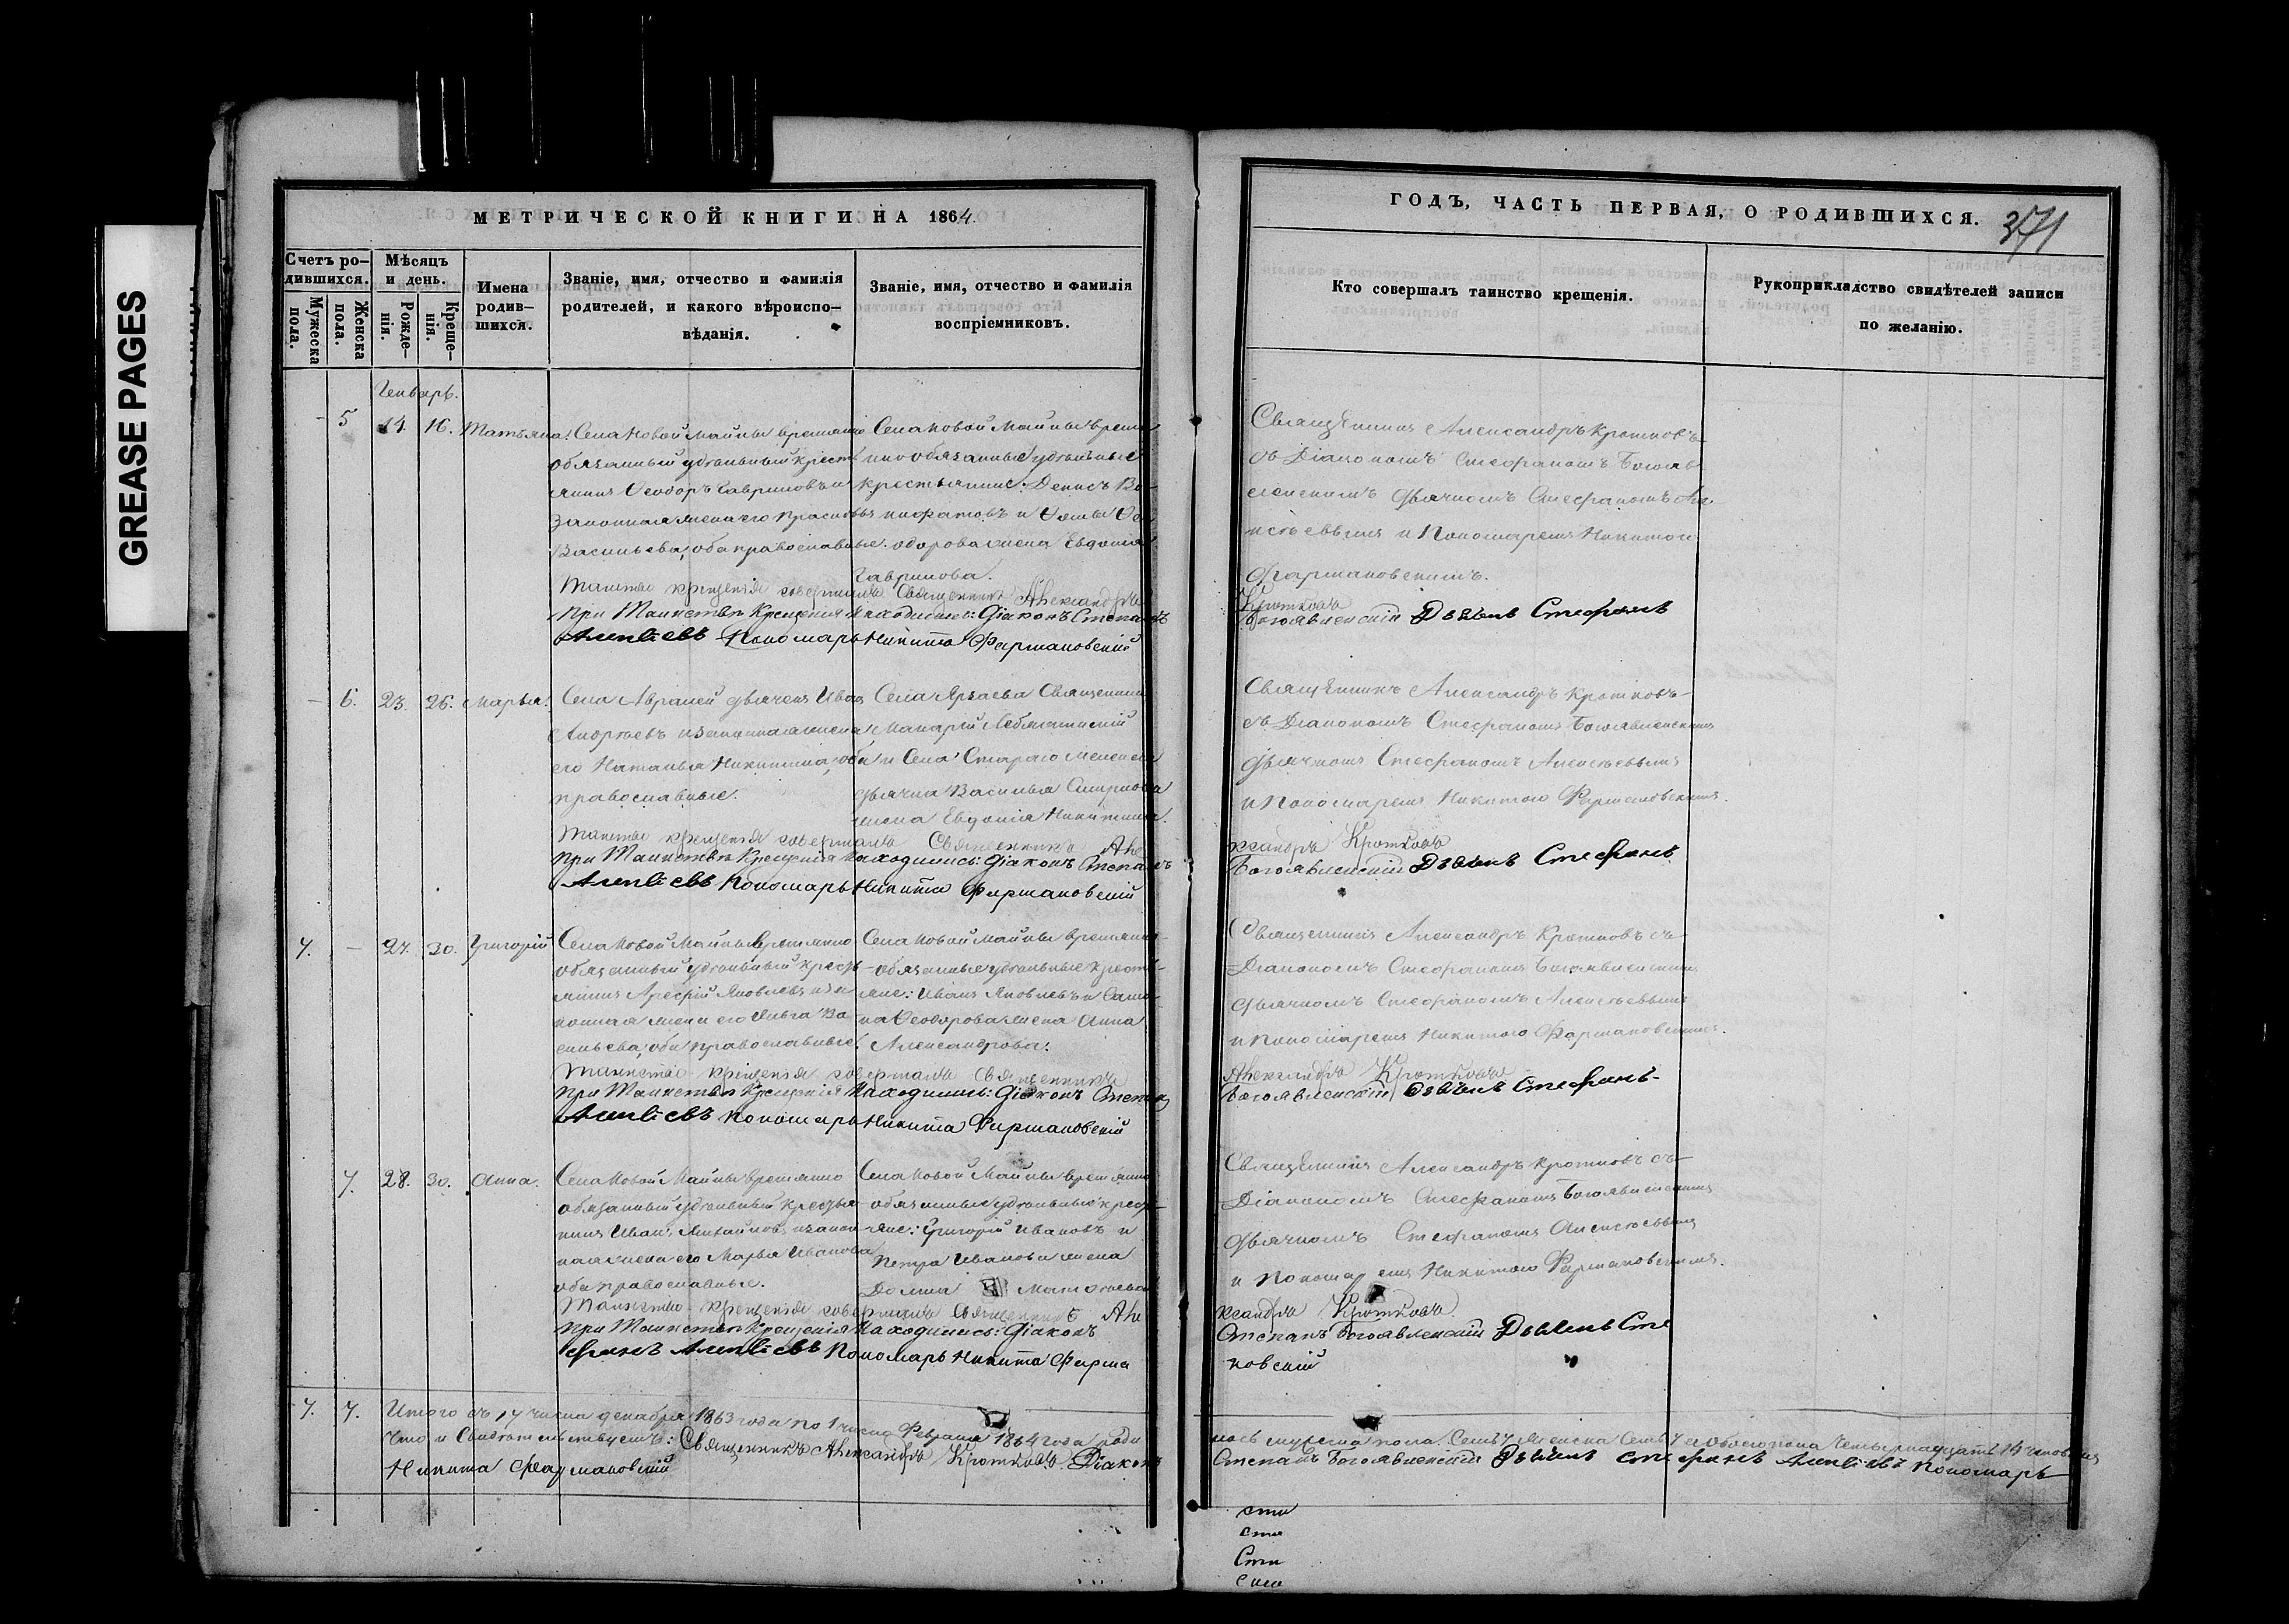 GREASE PAGES
МЕТРИЧЕСКОЙ КНИГИ НА 1864.
Счетъ ро-
дившихся.
Мужеска
пола.
Женска
пола.
Мѣсяцъ
и день.
Рожде-
нія.
Креще-
нія.
Имена
родив-
шихся.
Званіе, имя, отчество и фамилія
родителей, и какого вѣроиспо-
вѣданія.
Званіе, имя, отчество и фамилія
воспріемниковъ.
Генварь.
5 14. 16. Татьяна.
Села Новой Майны временно
обязанный удѣльный кресть
янинъ Ѳеодоръ Гавриловъ и
законная жена его
Васильева, оба православные.
Села Новой Майны време
нно обязанные удѣльные
крестьяне: Денисъ
одорова жена Евдокія
Гаврилова.
Таинство крещенія совершалъ Священникъ Александръ
При Таинствѣ Крещенія находились: Діаконъ Степанъ
Алексѣевъ Пономарь Никита Фармаковскій
6. 23. 26. Марья.
Села дьячекъ Иванъ
Андреевъ и законная жена
его Наталья Никитина, оба
православные.
Села Священникъ
Макарій
и Села Стараго
дьячка Василья Смирнова
жена Евдокія Никитина.
Таинство крещенія совершалъ Священникъ Але
При Таинствѣ Крещенія находились: Діаконъ Степанъ
Алексѣевъ Пономарь Никита Фармаковскій
7. — 27. 30. Григорій
Села Новой Майны Временно
обязанный удѣльный кресть
янинъ Арефій Яковлевъ и за
конная жена его Ольга Ва
сильева, оба православные.
Села Новой Майны временно-
обязанные удѣльные кресть-
яне: Иванъ Яковлевъ и
Ѳеодорова жена Анна
Александрова.
Таинство крещенія совершалъ Священникъ
При Таинствѣ Крещенія находились: Діаконъ Степанъ
Алексѣевъ Пономарь Никита Фармаковскій
7. 28. 30. Анна.
Села Новой Майны временно
обязанный удѣльный кресть
нинъ Иванъ Михайловъ и закон
ная жена его Марья Иванова
оба православные.
Села Новой Майны временно
обязанные удѣльные кресть-
яне: Григорій Ивановъ и
Петра Иванова жена
Таинство крещенія совершалъ Священникъ Але
При Таинствѣ Крещенія находились: Діаконъ
фанъ Алексѣевъ Пономарь Никита Фарма
7. 7. Итого съ 17 числа декабря 1863 года по 1 число Февраля 1864 года роди
Что и Свидѣтельствуемъ: Священникъ Александръ Кротковъ Діаконъ
Никита Фармаковскій
ГОДЪ, ЧАСТЬ ПЕРВАЯ, О РОДИВШИХСЯ.
371
Кто совершалъ таинство крещенія.
Рукоприкладство свидѣтелей записи
по желанію.
Священникъ Александръ Кротковъ
съ Діакономъ Стефаномъ Богояв
ленскимъ дьячкомъ Стефаномъ Але
ксѣевымъ и Пономаремъ Никитою
Фармаковскимъ.
Кротковъ
Богоявленскій Дьячекъ Стефанъ
Священникъ Александръ Кротковъ
съ Діакономъ Стефаномъ Богоявленскимъ
дьячкомъ Стефаномъ Алексѣевымъ
и Пономаремъ Никитою Фармаковскимъ.
ксандръ Кротковъ
Богоявленскій Дьячекъ Стефанъ
Священникъ Александръ Кротковъ съ
Діакономъ Стефаномъ Богоявленскимъ
дьячкомъ Стефаномъ Алексѣевымъ
и Пономаремъ Никитою Фармаковскимъ.
Александръ Кротковъ
Богоявленскій Дьячекъ Стефанъ
Священникъ Александръ Кротковъ съ
Діакономъ Стефаномъ Богоявленскимъ
дьячкомъ Стефаномъ Алексѣевымъ
и Пономаремъ Никитою Фармаковскимъ.
ксандръ Кротковъ
Степанъ Богоявленскій Дьячекъ Сте
ковскій
лось мужеска пола Семь 7 Женска Семь 7 а обоего пола четырнадцать 14 человѣкъ
Степанъ Богоявленскій Дьячекъ Стефанъ Алексѣевъ Пономарь